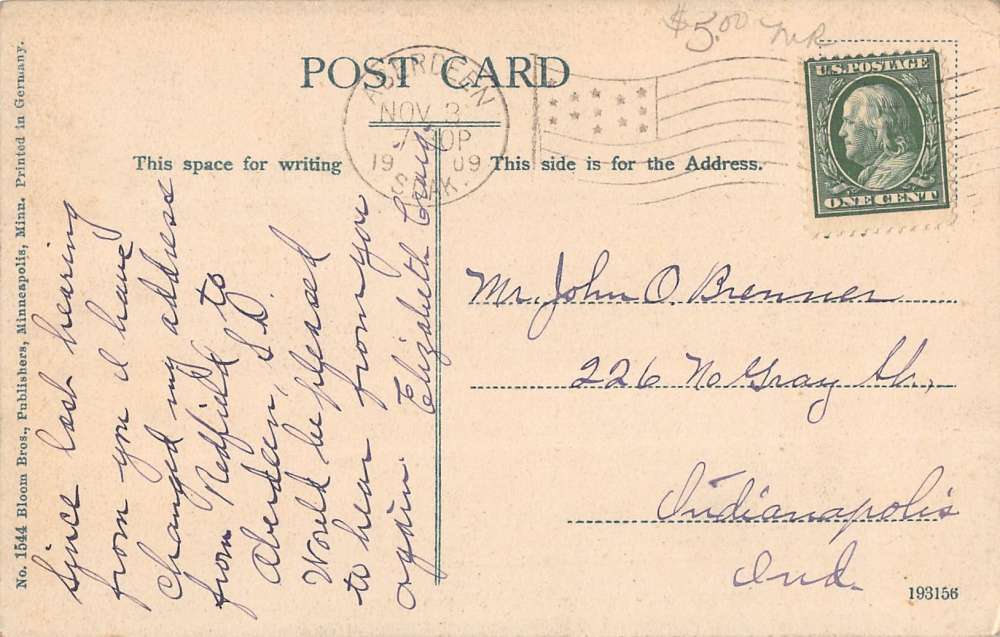 $5.00
POST CARD
ABERDEEN
NOV 3
19 09
S. DAK.
U.S. POSTAGE
ONE CENT
This space for writing
This side is for the Address.
No. 1544 Bloom Bros., Publishers, Minneapolis, Minn. Printed in Germany.
Since last hearing
from you I have
changed my address
from Redfield to
Aberdeen, S.D.
Would be pleased
to hear from you
again. Elizabeth
Mr. John O. Brenner
226 No Gray St.,
Indianapolis
Ind.
193156